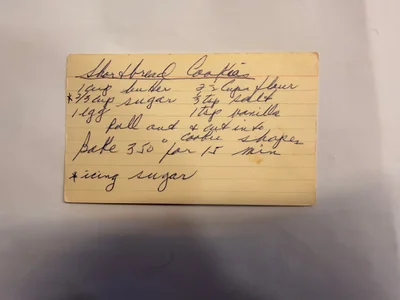 Shortbread Cookies
1 cup butter 2 1/2 cups flour
* 2/3 cup sugar 3/4 tsp salt
1 egg 1 tsp vanilla
Roll and cut into
cookie shapes
Bake 350° for 15 min
* icing sugar